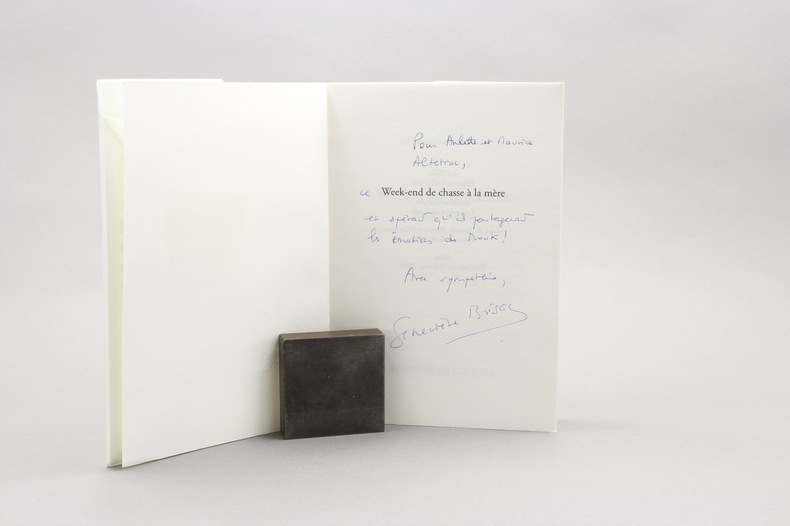 Pour Arlette et Maurice
Altetrac,
ce Week-end de chasse à la mère
en espérant qu'ils partageront
les émotions de Nouk !
Avec sympathie,
Geneviève Brisac